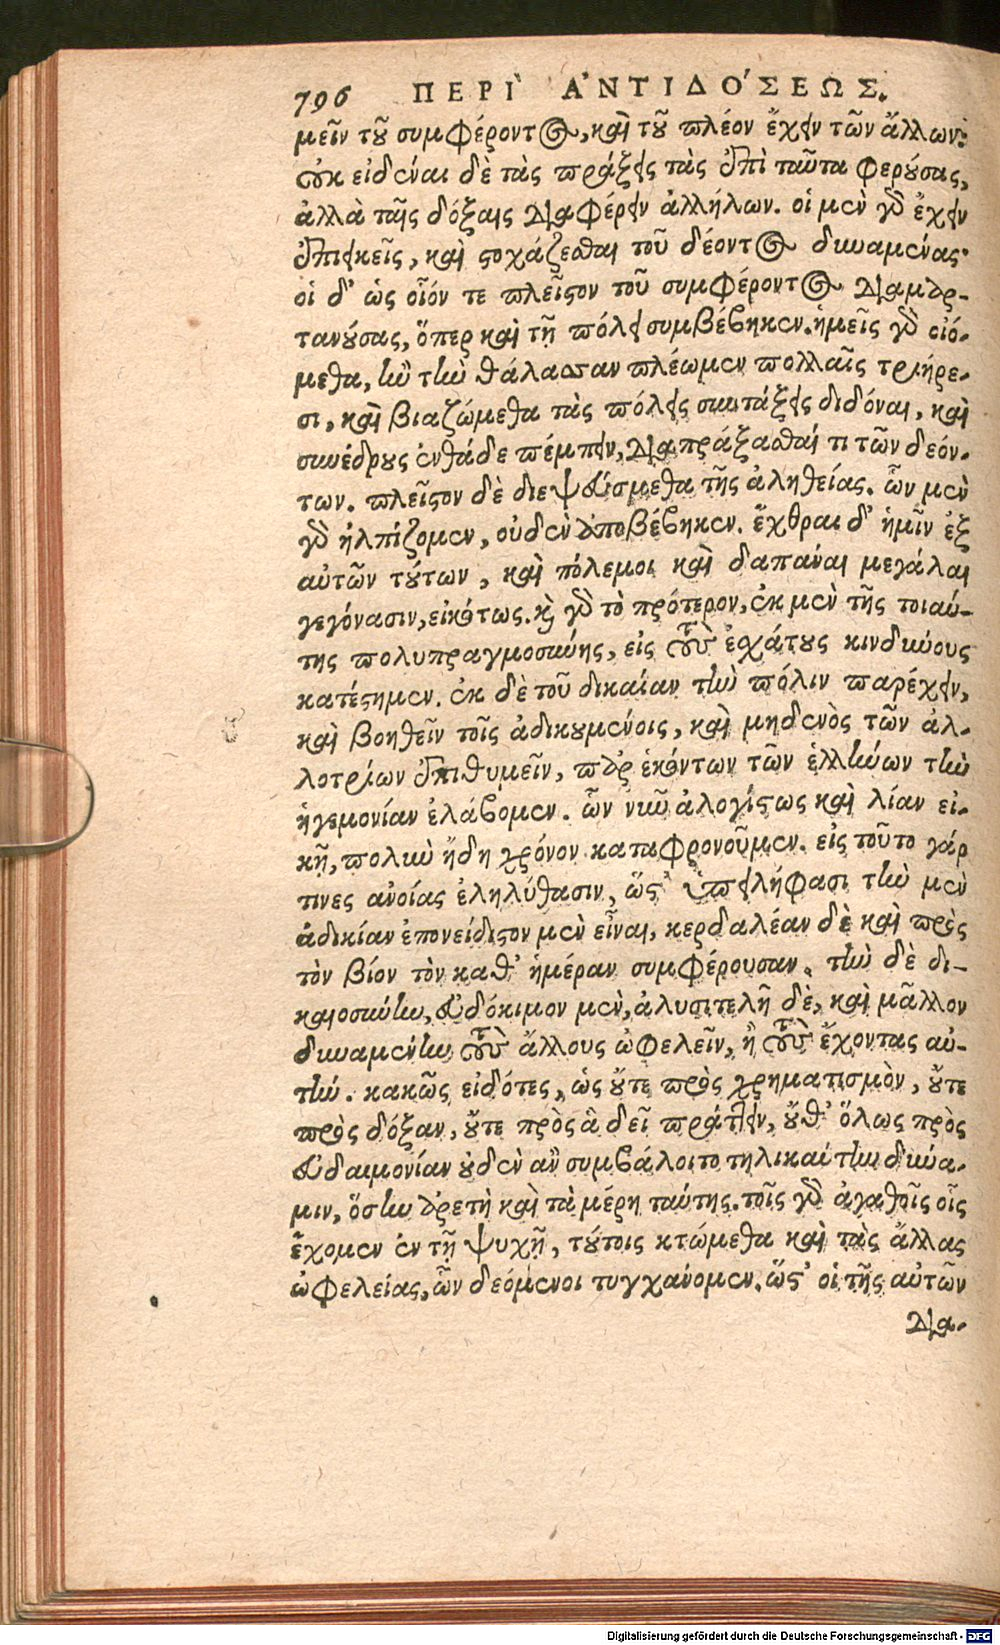 796 ΠΕΡῚ ἈΝΤΙΔΌΣΕΩΣ.
μεῖν τοῦ συμφέροντος, καὶ τοῦ πλέον ἔχειν τῶν ἄλλων:
οὐκ εἰδέναι δὲ τὰς πράξεις τὰς ἐπὶ ταῦτα φερούσας,
ἀλλὰ ταῖς δόξαις διαφέρειν ἀλλήλων. οἱ μὲν γὰρ ἔχειν
ἐπιεικεῖς, καὶ στοχάζεσθαι τοῦ δέοντος δυναμένας·
οἱ δ' ὡς οἷόν τε πλεῖστον τοῦ συμφέροντος διαμαρ-
τανούσας, ὅπερ καὶ τῇ πόλει συμβέβηκεν. ἡμεῖς γὰρ οἰό-
μεθα, ἢν τὴν θάλασσαν πλέωμεν πολλαῖς τριήρε-
σι, καὶ βιαζώμεθα τὰς πόλεις συντάξεις διδόναι, καὶ
συνέδρους ἐνθάδε πέμπειν, διαπράξασθαί τι τῶν δεόν-
των. πλεῖστον δὲ διεψεύσμεθα τῆς ἀληθείας. ὧν μὲν
γὰρ ἠλπίζομεν, οὐδὲν ἀποβέβηκεν. ἔχθραι δ' ἡμῖν ἐξ
αὐτῶν τούτων, καὶ πόλεμοι καὶ δαπάναι μεγάλαι
γεγόνασιν, εἰκότως. καὶ γὰρ τὸ πρότερον, ἐκ μὲν τῆς τοιαύ-
της πολυπραγμοσύνης, εἰς τοὺς ἐσχάτους κινδύνους
κατέστημεν. ἐκ δὲ τοῦ δικαίαν τὴν πόλιν παρέχειν,
καὶ βοηθεῖν τοῖς ἀδικουμένοις, καὶ μηδενὸς τῶν ἀλ-
λοτρίων ἐπιθυμεῖν, παρ' ἑκόντων τῶν ἑλλήνων τὴν
ἡγεμονίαν ἐλάβομεν. ὧν νῦν ἀλογίστως καὶ λίαν εἰ-
κῇ, πολὺν ἤδη χρόνον καταφρονοῦμεν. εἰς τοῦτο γάρ
τινες ἀνοίας ἐληλύθασιν, ὥστ' ὑπειλήφασι τὴν μὲν
ἀδικίαν ἐπονείδιστον μὲν εἶναι, κερδαλέαν δὲ καὶ πρὸς
τὸν βίον τὸν καθ' ἡμέραν συμφέρουσαν. τὴν δὲ δι-
καιοσύνην, εὐδόκιμον μὲν, ἀλυσιτελῆ δὲ, καὶ μᾶλλον
δυναμένην τοὺς ἄλλους ὠφελεῖν, ἢ τοὺς ἔχοντας αὐ-
τήν. κακῶς εἰδότες, ὡς οὔτε πρὸς χρηματισμὸν, οὔτε
πρὸς δόξαν, οὔτε πρὸς ἃ δεῖ πράττειν, οὔθ' ὅλως πρὸς
εὐδαιμονίαν οὐδὲν ἂν συμβάλοιτο τηλικαύτην δύνα-
μιν, ὅσην ἀρετὴ καὶ τὰ μέρη ταύτης. τοῖς γὰρ ἀγαθοῖς οἷς
ἔχομεν ἐν τῇ ψυχῇ, τούτοις κτώμεθα καὶ τὰς ἄλλας
ὠφελείας, ὧν δεόμενοι τυγχάνομεν. ὥστ' οἱ τῆς αὐτῶν
δια-
Digitalisierung gefördert durch die Deutsche Forschungsgemeinschaft - DFG